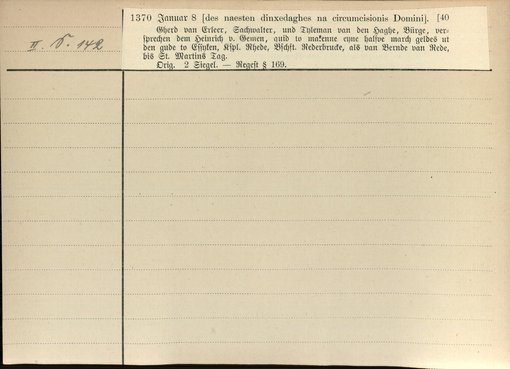 1370 Januar 8 [des naesten dinxedaghes na circumcisionis Domini]. [40
Gherd van Erleer, Sachwalter, und Tyleman van den Haghe, Bürge, ver-
sprechen dem Heinrich v. Gemen, quid to makenne eyne halfve march geldes ut
den gude to Essyken, Kspl. Rhede, Bschft. Rederbrucke, als van Bernde van Rede,
bis St. Martins Tag.
Orig. 2 Siegel. — Regest § 169.
II. S. 142